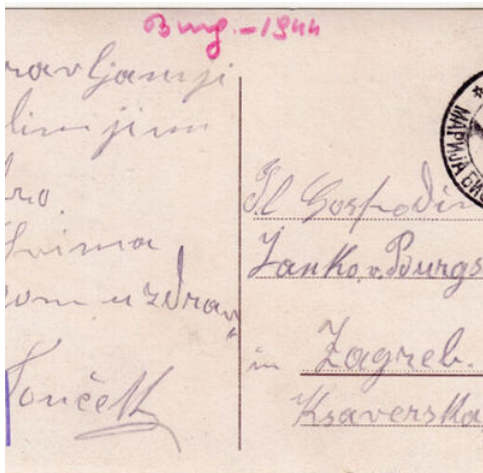 Burg. - 1944
ravljamji
jim
Svima
om u zdrav
Tonček
МАРИЈА БИС
Gospodin
Janko v. Burgs
in Zagreb.
Ksaverska